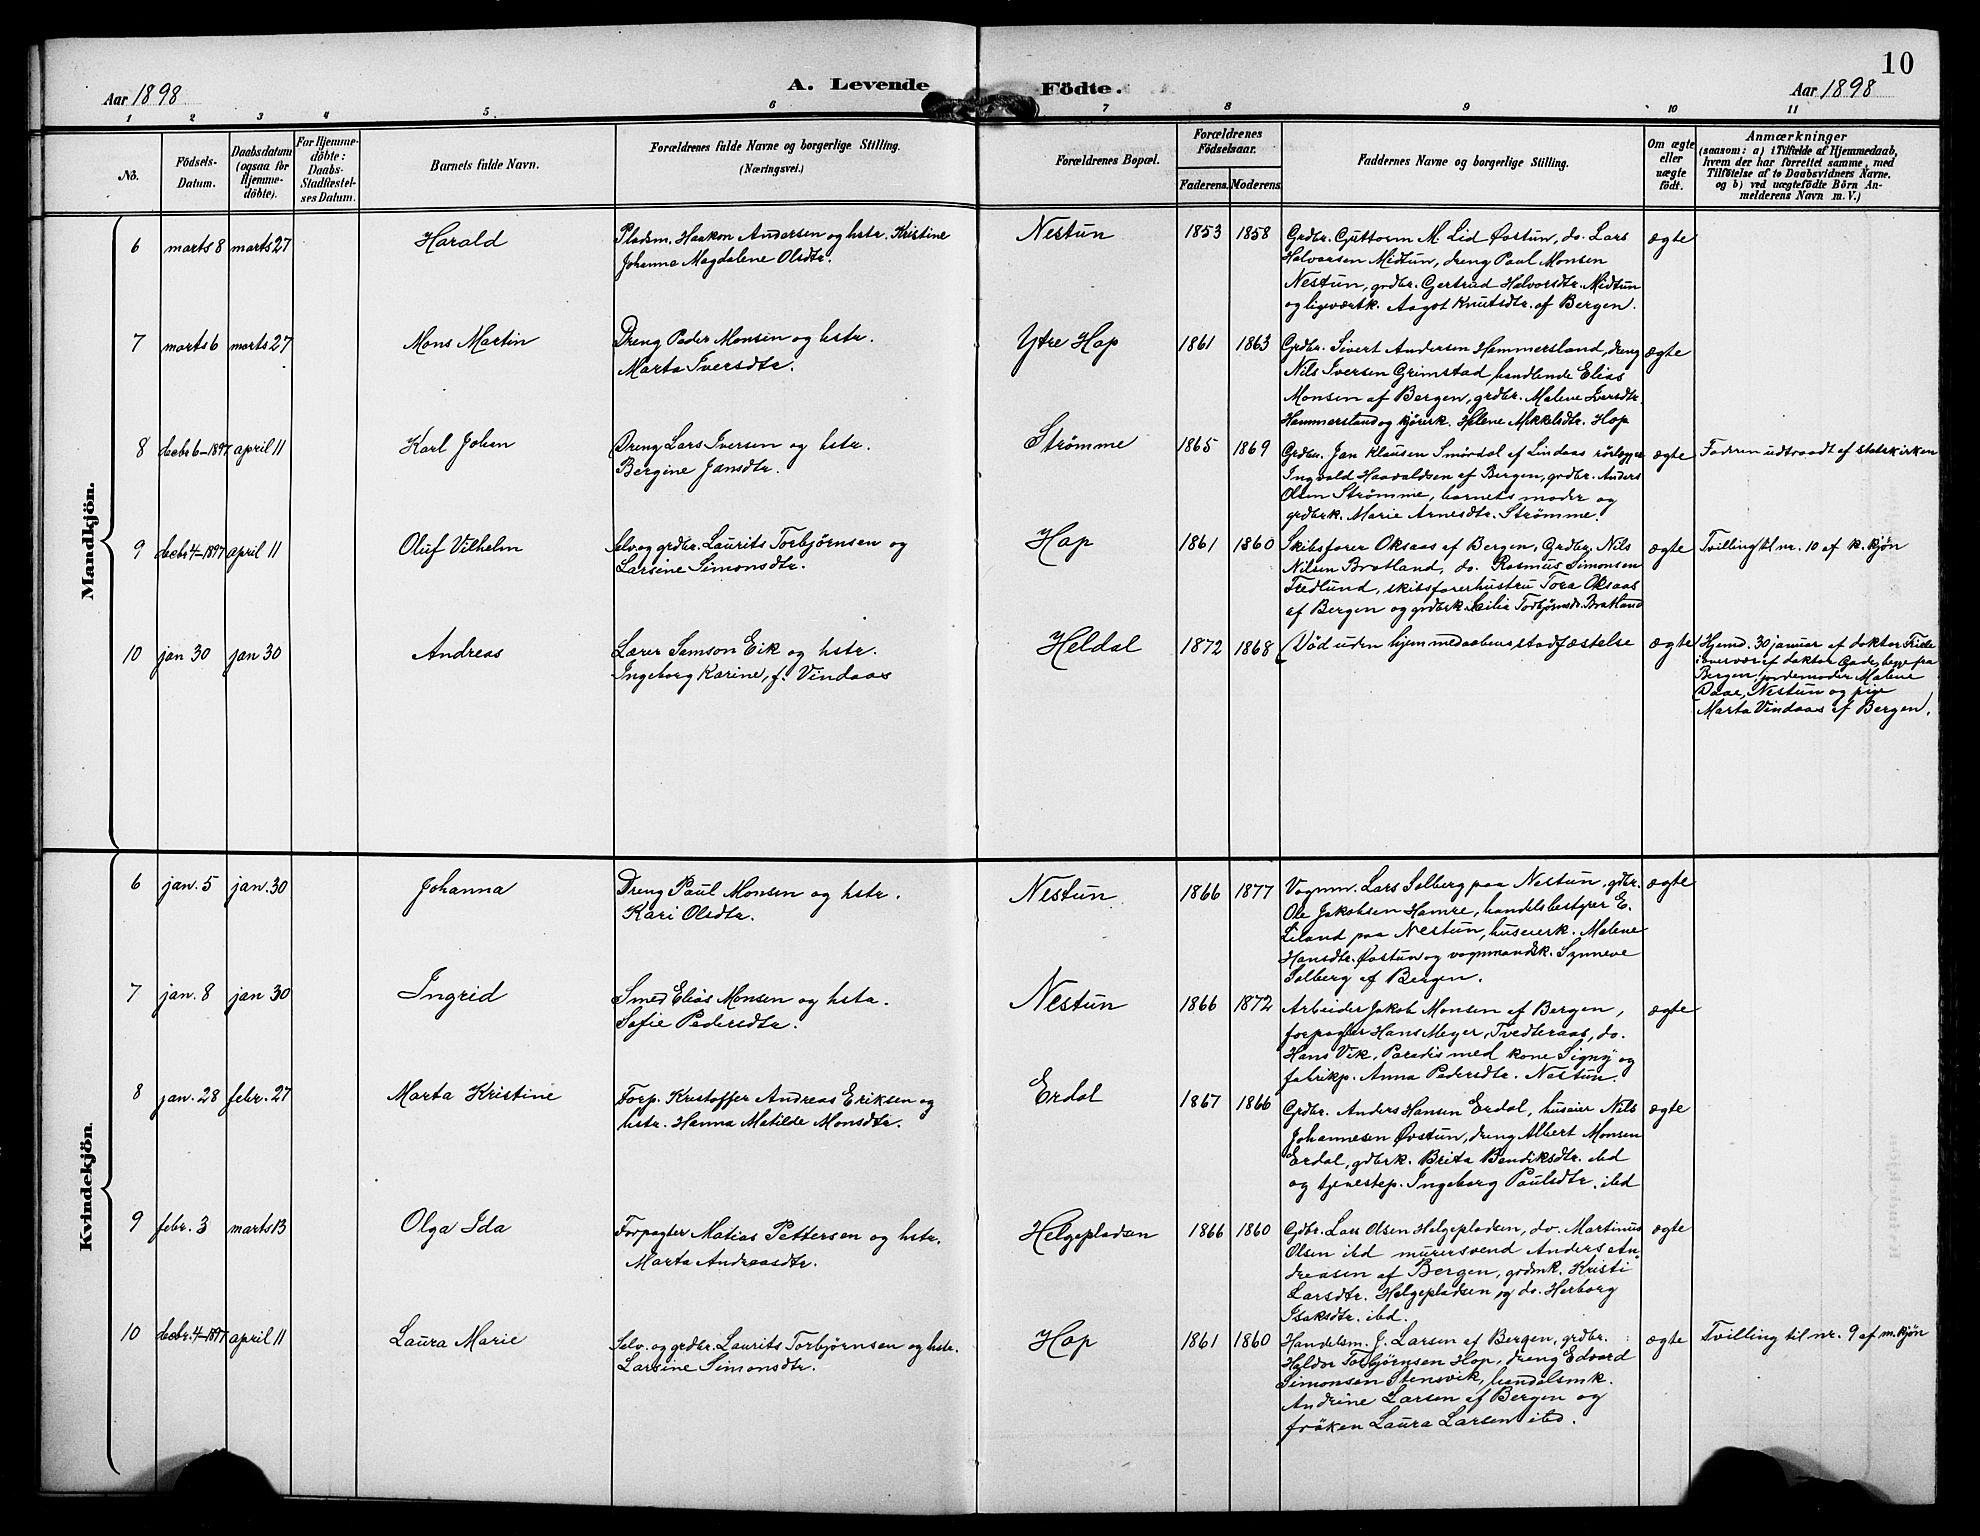 10
Aar 1898
A. Levende Födte.
Aar 1898
1 2 3 4 5 6 7 8 9 10 11
No.
Födsels-
Datum.
Daabsdatum
(ogsaa for
Hjemme-
döbte).
For Hjemme-
döbte:
Daabs-
Stadfæstel-
ses Datum.
Barnets fulde Navn.
Forældrenes fulde Navne og borgerlige Stilling.
(Næringsvei.)
Forældrenes Bopæl.
Forældrenes
Födselsaar.
Faderens. Moderens.
Faddernes Navne og borgerlige Stilling.
Om ægte
eller
uægte
födt.
Anmærkninger
(saasom: a) i Tilfælde af Hjemmedaab,
hvem der har forrettet samme, med
Tilföielse af to Daabsvidners Navne.
og b) ved uægtefödte Börn An-
melderens Navn m. V.)
Mandkjön.
6 marts 8 marts 27 Harald
Pladsm. Haakon Andersen og hstr. Kristine
Johanna Magdalene Olsdtr.
Nestun 1853 1858
Grdbr. Guttorm M. Lid Øvstun, do. Lars
Halvorsen Midtun, dreng Paul Monsen
Nestun, grdbr. Gertrud Halvorsdtr. Midtun
og ligeværtk. Aagot Knutsdtr. af Bergen.
ægte
7 marts 6 marts 27 Mons Martin
Dreng Peder Monsen og hstr.
Marta Iversdtr.
Ytre Hop 1861 1863
Grdbr. Sivert Andersen Hammersland, dreng
Nils Iversen Grimstad, handlende Elias
Monsen af Bergen, grdbr. Malene Iversdtr.
Hammersland og kjörerk. Helene Mikkelsdtr. Hop
ægte
8 decbr 6-1897 april 11 Karl Johan
Dreng Lars Iversen og hstr.
Bergine Jansdtr.
Strømme 1865 1869
Grdbr. Jan Klausen Smørdal af Lindaas rörlægger
Ingvald Haavaldsen af Bergen, grdbr. Anders
Olsen Strømme, barnets moder og
grdbrk. Marie Arnesdtr. Strømme.
ægte Faderen udtraadt af statskirken
9 decbr 4-1897 april 11 Oluf Vilhelm
Selv og grdbr. Laurits Torbjørnsen og
Larsine Simonsdtr.
Hop 1861 1860
Skibsfører Oksaas af Bergen, Grdbr. Nils
Nilsen Bratland, do. Rasmus Simonsen
Fredlund, skibsførerhustru Tora Oksaas
af Bergen og grdbrk. Silia Torbjørnsdr. Bratland
ægte Tvilling til nr. 10 af k. kjøn
10 jan 30 jan 30 Andreas
Lærer Samson Eik og hstr.
Ingeborg Karine, f. Vindaas
Heldal 1872 1868
(Död uden hjemmedaabens stadfæstelse
ægte
Hjemd. 30 januar af doktor Friele
i overvær af doktor Gade, begge fra
Bergen, jordemoder Malene
Daae, Nestun og pige
Marta Vindaas af Bergen.
Kvindekjön.
6 jan. 5 jan. 30 Johanna
Dreng Paul Monsen og hstr.
Kari Olsdtr.
Nestun 1866 1877
Vognm. Lars Solberg paa Nestun, gdbr.
Ole Jakobsen Hamre, handelsbestyrer E.
Liland paa Nestun, huseierk. Malene
Hansdtr. Øvstun og vognmandsk. Synneve
Solberg af Bergen.
ægte
7 jan. 8 jan 30 Ingrid
Smed Elias Monsen og hstr.
Sofie Pedersdtr.
Nestun 1866 1872
Arbeider Jakob Monsen af Bergen,
forpagter Hans Meyer, Tvedteraas, do.
Hans Vik, Paradis med kone Signy og
fabrikp. Anna Pedersdtr. Nestun.
ægte
8 jan. 28 febr. 27 Marta Kristine
Forp. Kristoffer Andreas Eriksen og
hstr. Hanna Matilde Monsdtr.
Erdal 1867 1866
Grdbr. Anders Hansen Erdal, huseier Nils
Johannesen Øvstun, dreng Albert Monsen
Erdal, gdbrk. Brita Bendiksdtr. ibd
og tjenestep. Ingeborg Paulsdtr. ibd
ægte
9 febr. 3 marts 13 Olga Ida
Forpagter Matias Pettersen og hstr.
Marta Andreasdtr.
Helgepladsen 1866 1860
Gdbr. Lars Olsen Helgepladsen, do. Martinus
Olsen ibd murersvend Anders An-
dreasen af Bergen, grdmk. Kristi
Larsdtr. Helgepladsen og do. Herborg
Isaksdtr. ibd.
ægte
10 decbr. 4-1897 april 11 Laura Marie
Selv. og grdbr. Laurits Torbjörnsen og hstr.
Larsine Simonsdtr.
Hop 1861 1860
Handelsm. J. Larsen af Bergen, grdbr.
Haldor Torbjørnsen Hop, dreng Edvard
Simonsen Stensvik, handelsmk.
Andrine Larsen af Bergen og
fröken Laura Larsen ibd.
ægte Tvilling til nr. 9 af m. kjøn